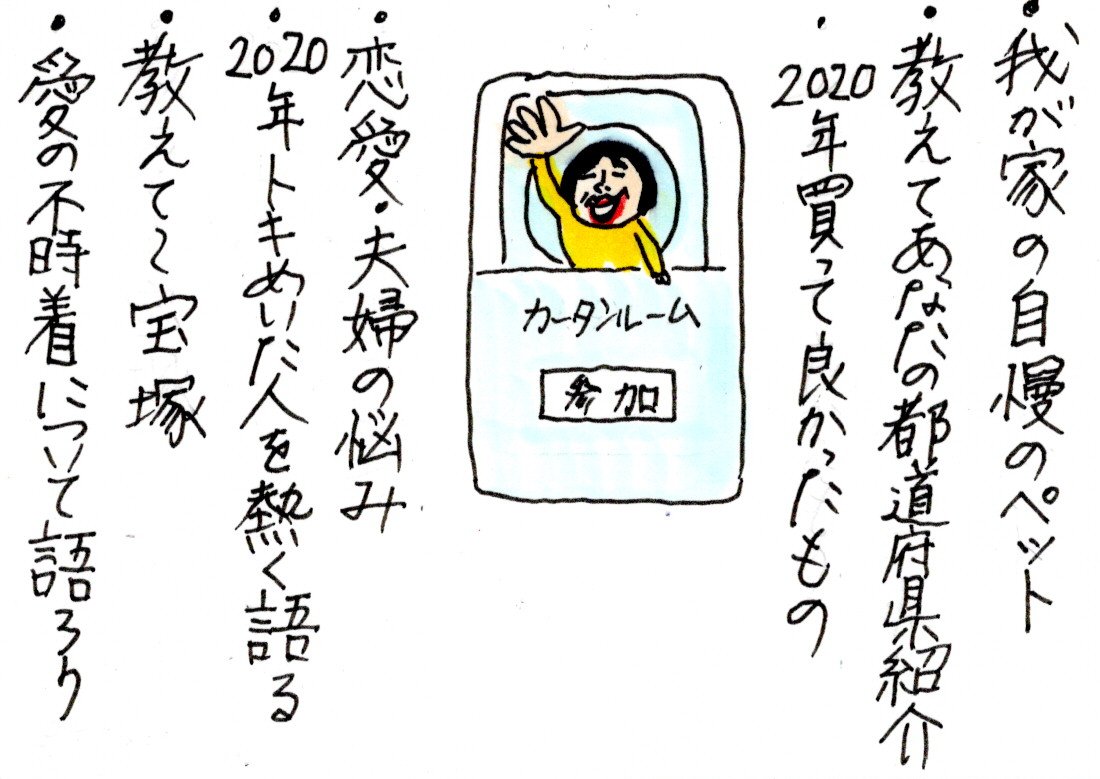 ・我が家の自慢のペット
・教えてあなたの都道府県紹介
・2020年買って良かったもの
カータンルーム
参加
・恋愛・夫婦の悩み
・2020年トキめいた人を熱く語る
・教えて〜宝塚
・愛の不時着について語ろう